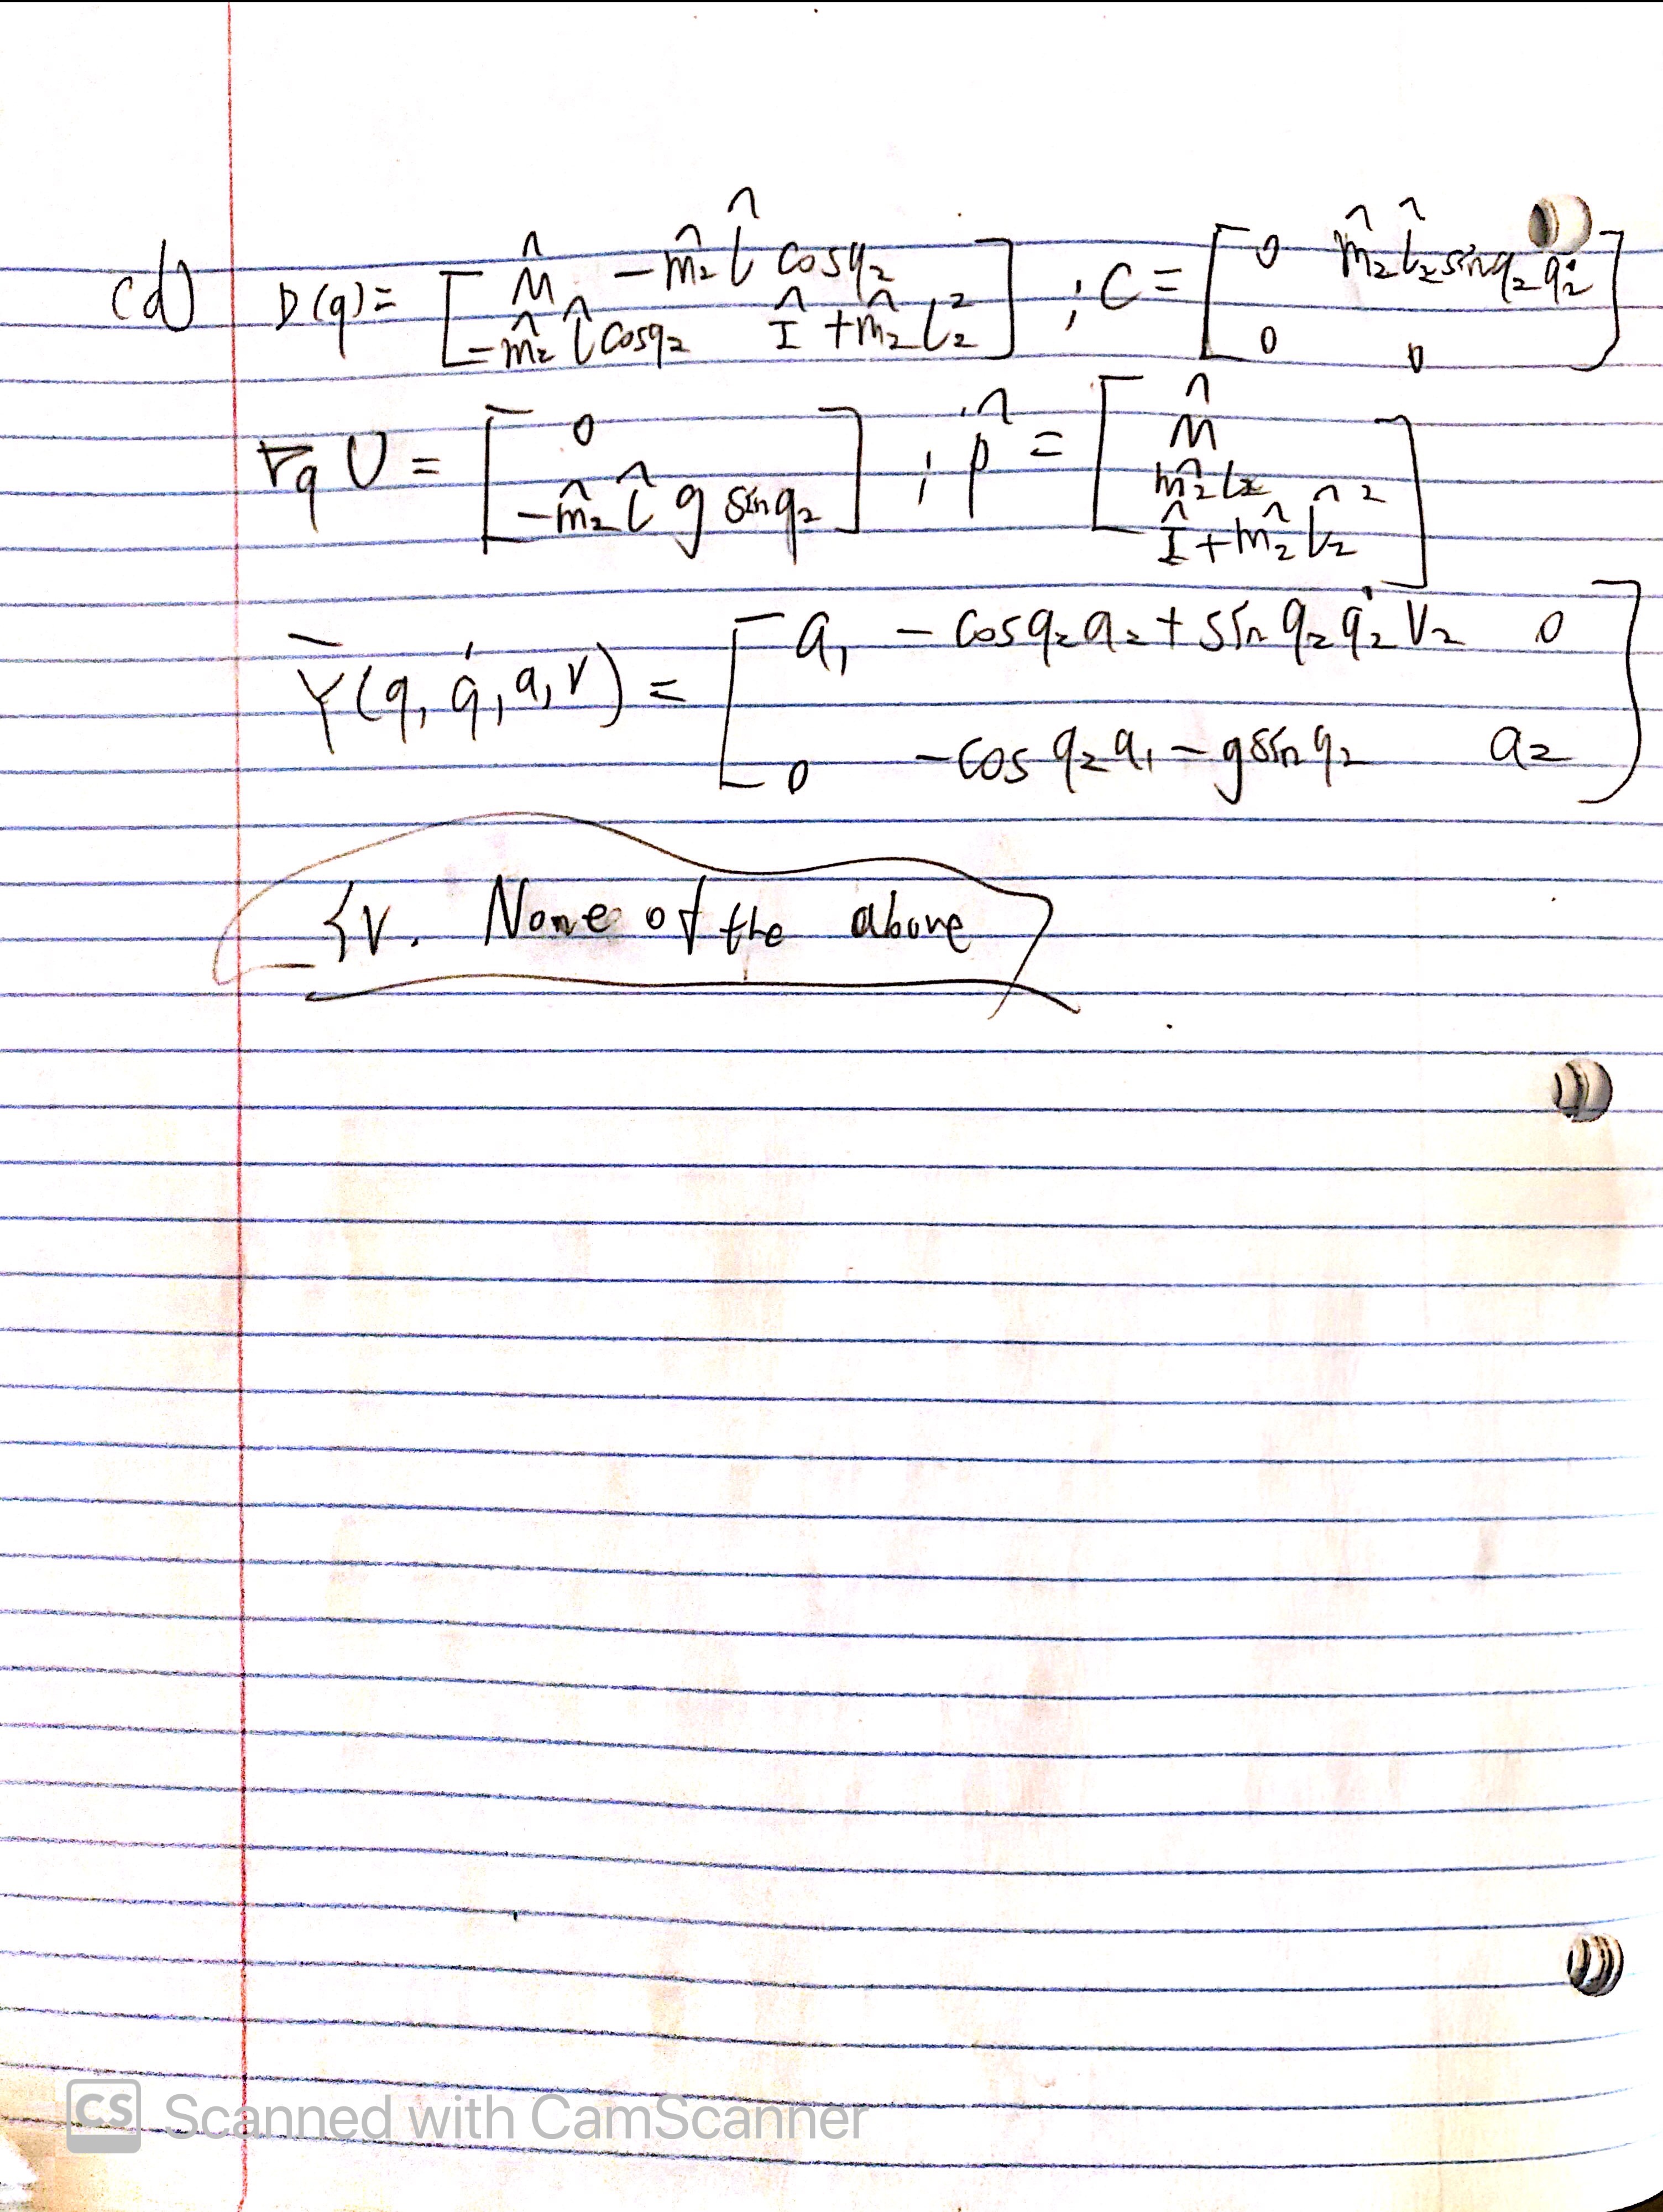 (d) D(q) = [ M̂  -m̂₂ l̂ cosq₂ ; -m̂₂ l̂ cosq₂  Î + m̂₂ l₂² ] ; C = [ 0  m̂₂ l̂₂ sinq₂ q̇₂ ; 0  0 ]
∇q U = [ 0 ; -m̂₂ l̂ g sinq₂ ] ; p̂ = [ M̂ ; m̂₂l₂ ; Î + m̂₂ l̂₂² ]
Y(q, q̇, a, v) = [ a₁  - cosq₂ a₂ + sin q₂ q̇₂ V₂  0 ; 0  -cos q₂ a₁ - g sin q₂  a₂ ]
iv. None of the above
CS Scanned with CamScanner